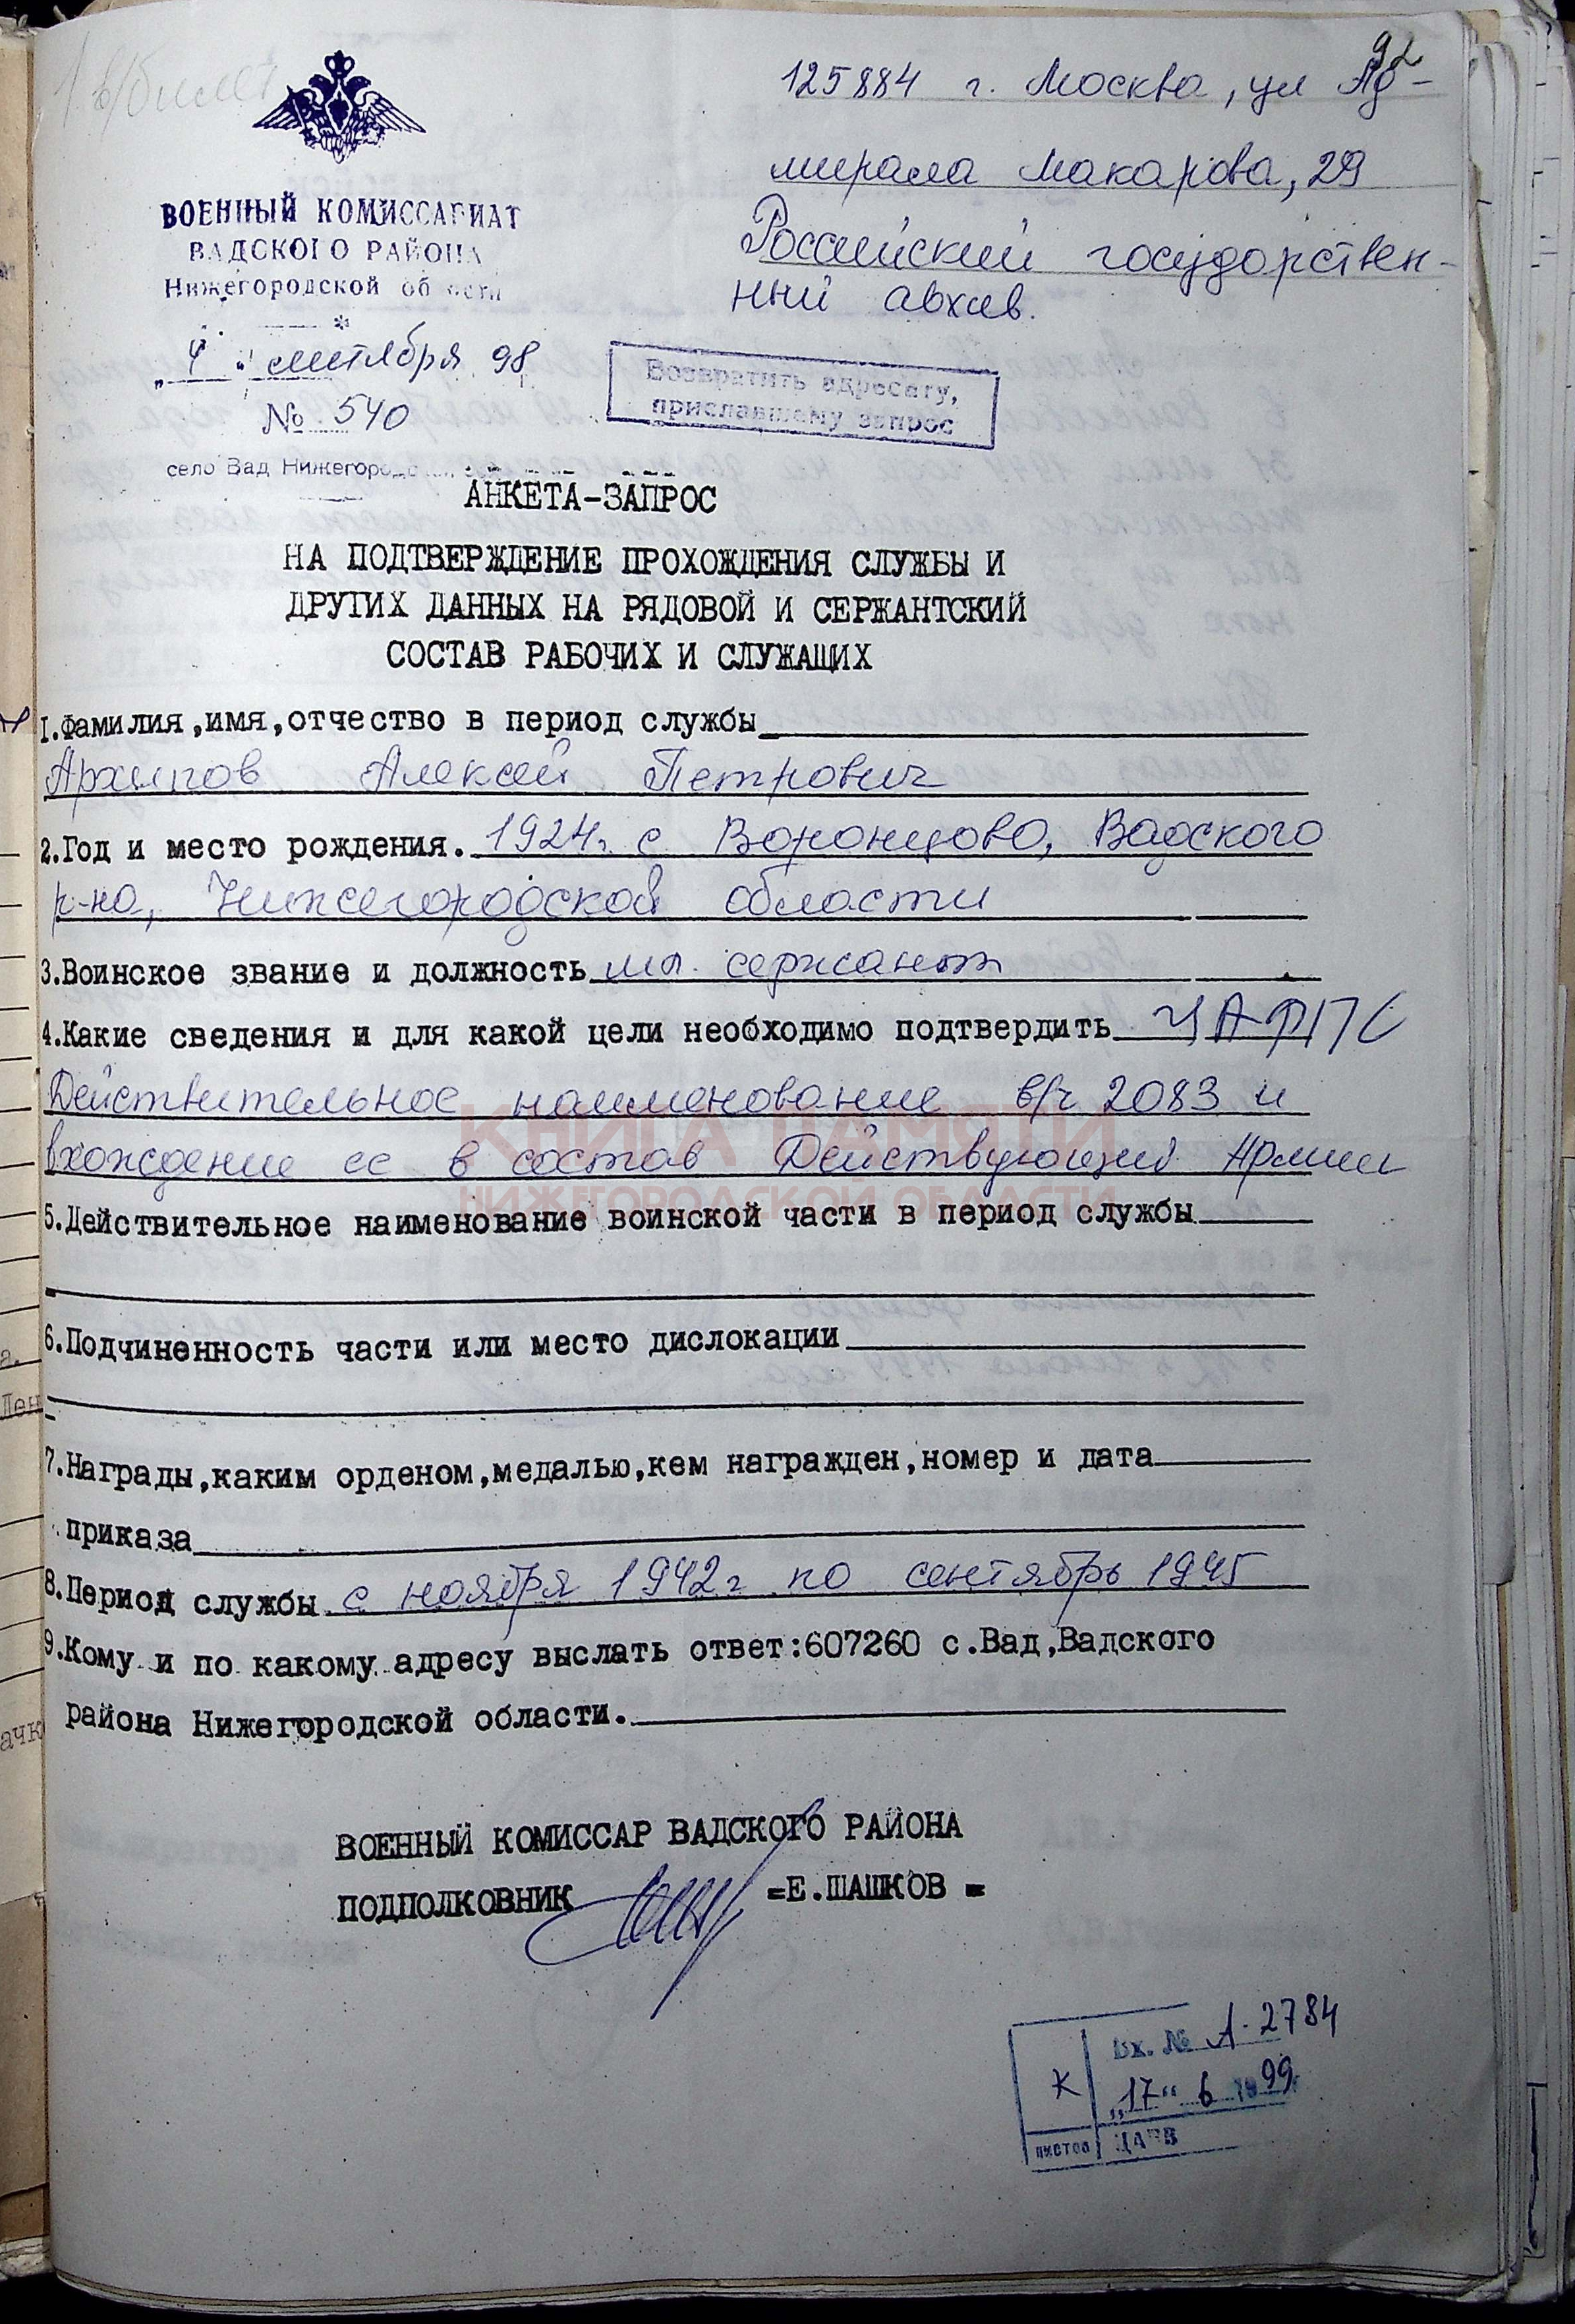 92
1 в/билет
125884 г. Москва, ул Ад-
мирала Макарова, 29
Российский государствен-
ный архив.
ВОЕННЫЙ КОМИССАРИАТ
ВАДСКОГО РАЙОНА
Нижегородской области
„4" сентября 98 г.
№ 540
село Вад Нижегородской
Возвратить адресату,
приславшему запрос
АНКЕТА-ЗАПРОС
НА ПОДТВЕРЖДЕНИЕ ПРОХОЖДЕНИЯ СЛУЖБЫ И
ДРУГИХ ДАННЫХ НА РЯДОВОЙ И СЕРЖАНТСКИЙ
СОСТАВ РАБОЧИХ И СЛУЖАЩИХ
1.Фамилия,имя,отчество в период службы
Архипов Алексей Петрович
2.Год и место рождения. 1924г. с Воронцово, Вадского
р-на, Нижегородской области
3.Воинское звание и должность мл. сержант
4.Какие сведения и для какой цели необходимо подтвердить ЦАФПС
Действительное наименование в/ч 2083 и
вхождение ее в состав Действующей Армии
КНИГА ПАМЯТИ
НИЖЕГОРОДСКОЙ ОБЛАСТИ
5.Действительное наименование воинской части в период службы
6.Подчиненность части или место дислокации
7.Награды,каким орденом,медалью,кем награжден,номер и дата
приказа
8.Период службы с ноября 1942г по сентябрь 1945
9.Кому и по какому адресу выслать ответ:607260 с.Вад,Вадского
района Нижегородской области.
ВОЕННЫЙ КОМИССАР ВАДСКОГО РАЙОНА
ПОДПОЛКОВНИК =Е.ШАШКОВ =
Вх. № А-2784
К „17" 6 1999
листов ЦАПВ